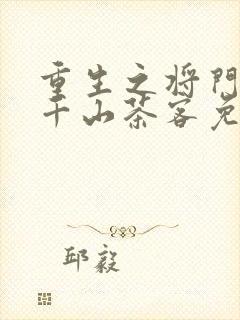 重生之将门
千山茶客免
邱毅